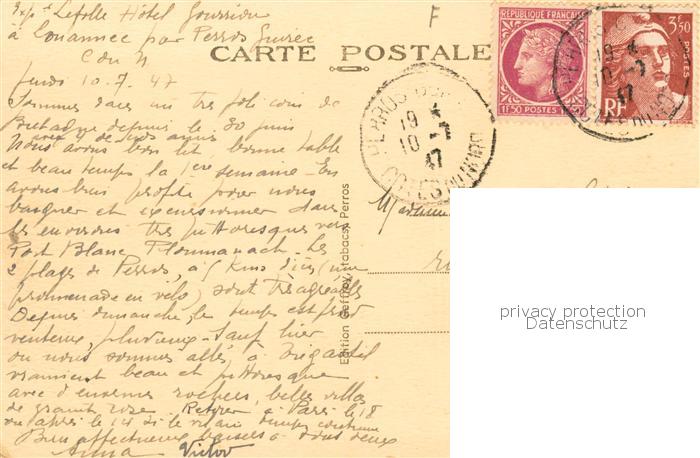 Exp. Lefolle Hôtel Gourriou
à Louannec par Perros Guirec
C du N
F
CARTE POSTALE
RÉPUBLIQUE FRANÇAISE
1F50 POSTES
3F50
POSTES
RF
PERROS-GUIREC
19
10 -7
47
CÔTES DU NORD
jeudi 10.7.47
Sommes dans un très joli coin de
Bretagne depuis le 30 juin
avec de nos amis
Nous avons bon lit, bonne table
et beau temps la 1ère semaine. En
avons bien profité pour nous
baigner et excursionner dans
les environs très pittoresques vers
Port Blanc Ploumanach. Les
2 plages de Perros, à 5 kms d'ici (une
promenade en vélo) sont très agréables
Depuis dimanche, le temps est froid
venteux, pluvieux - sauf hier
où nous sommes allés à Trégastel
vraiment beau et pittoresque
avec d'énormes rochers, belles villas
de granit rose. Retour à Paris le 18
ou après le 14 si le vilain temps continue
Bien affectueux baisers à vous deux
Anna Victor
Edition Geffroy, tabacs, Perros
privacy protection
Datenschutz